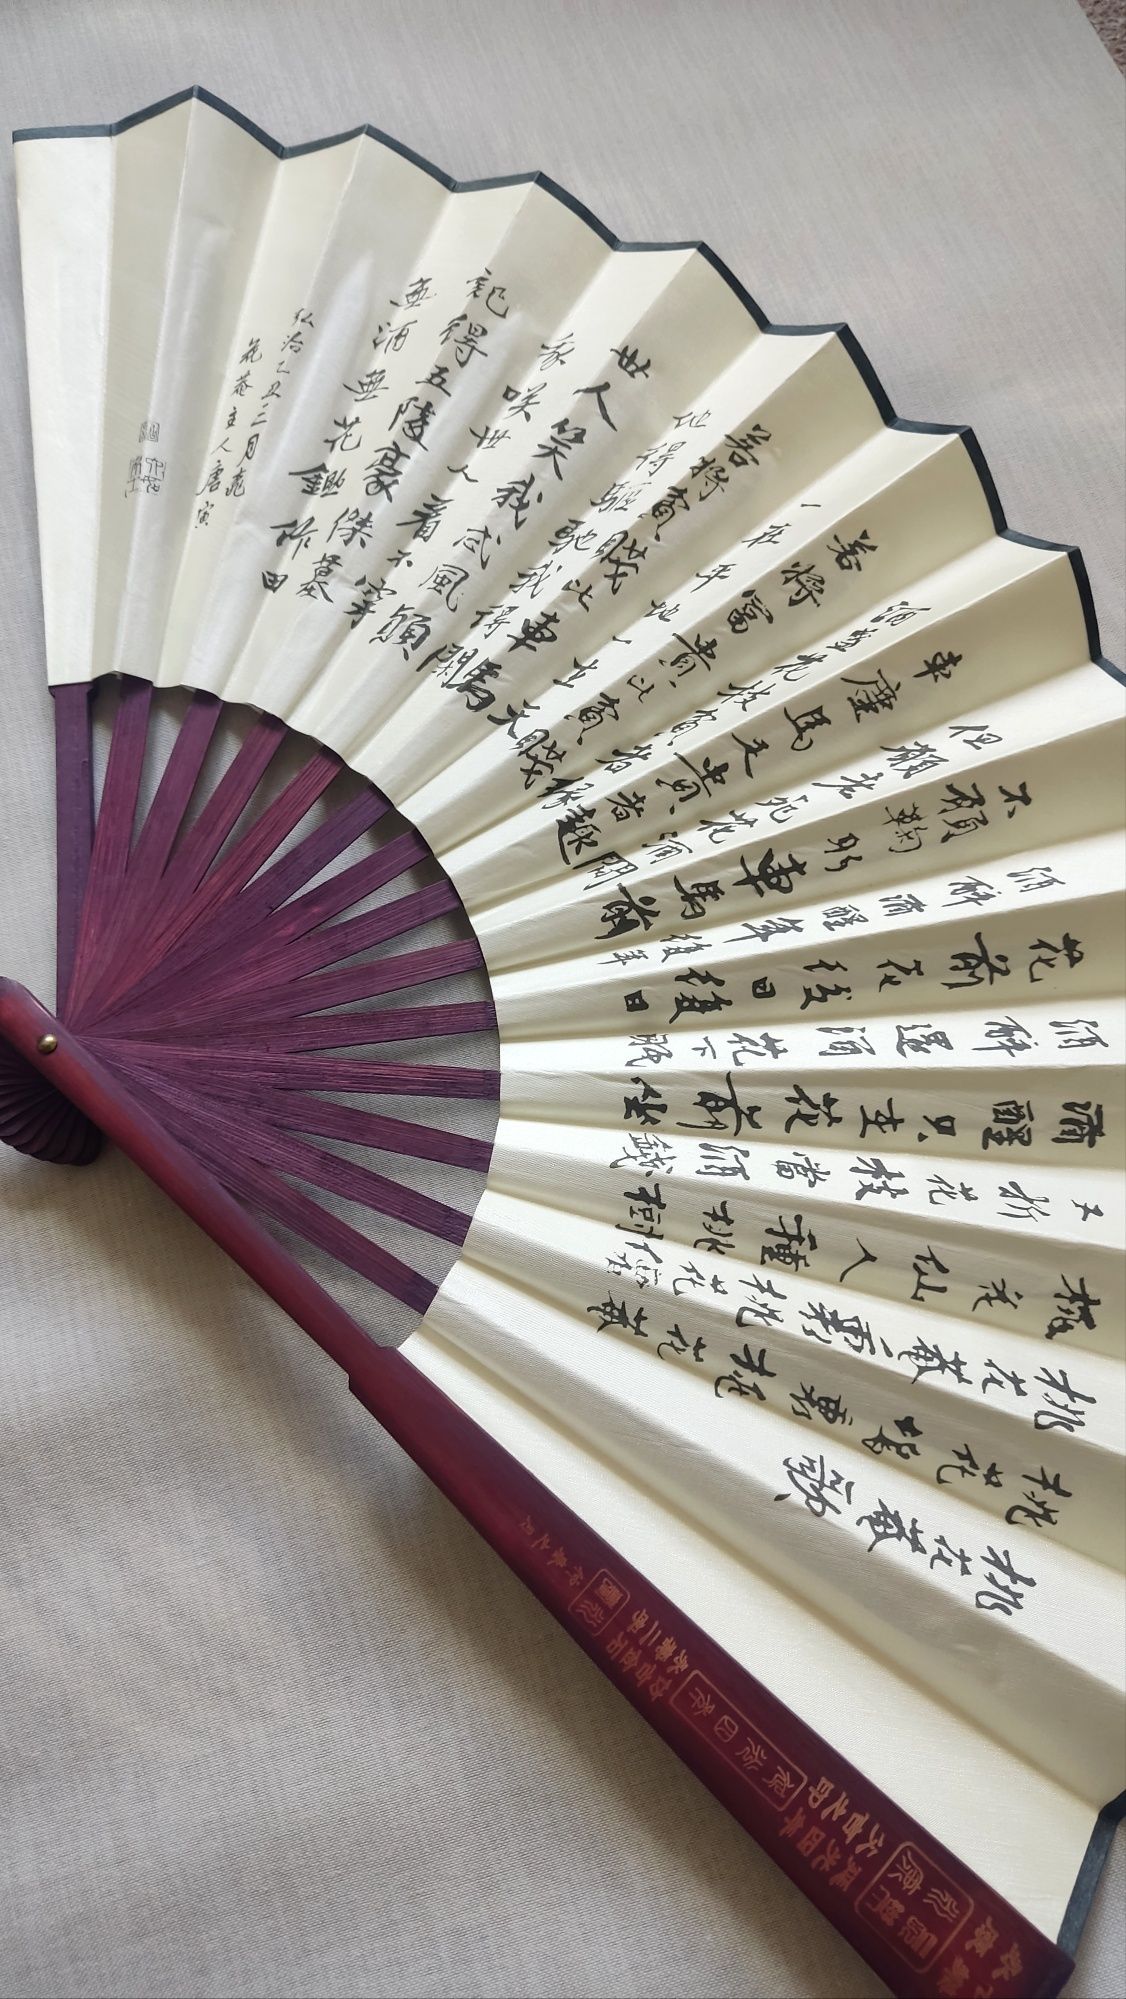 桃花菴歌
桃花塢裏桃花菴
桃花菴裏桃花仙
桃花仙人種桃樹
又折花枝當酒錢
酒醒只在花前坐
酒醉還須花下眠
花前花後日復日
酒醉酒醒年復年
不願鞠躬車馬前
但願老死花酒間
車塵馬足貴者趣
酒盞花枝貧者緣
若將富貴比貧者
一在平地一在天
若將貧賤比車馬
他得驅馳我得閑
世人笑我忒風顛
我咲世人看不穿
記得五陵豪傑墓
無酒無花鋤作田
弘治乙丑三月桃
花菴主人唐寅